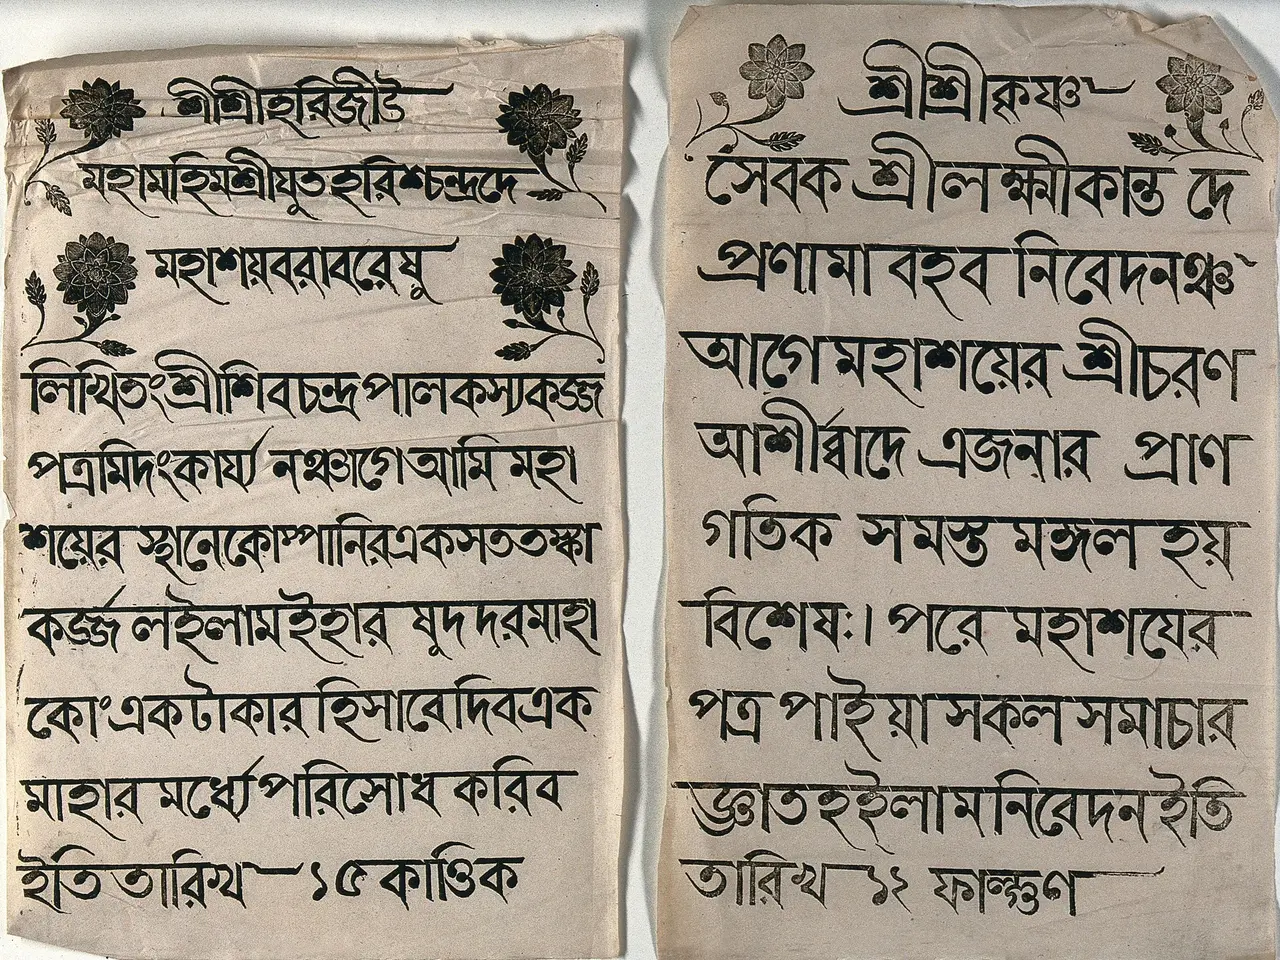 শ্রীশ্রীহরিজীউ
মহামহিমশ্রীযুতহরিশ্চন্দ্রদে
মহাশয়বরাবরেষু
লিখিতংশ্রীশিবচন্দ্রপালকস্যকর্জ্জ
পত্রমিদংকার্য্য নঞ্চাগেআমি মহা
শয়ের স্থানেকোম্পানিরএকসততঙ্কা
কর্জ্জ লইলামইহার ষুদ দরমাহা
কোং একটাকার হিসাবেদিবএক
মাহার মর্ধ্যেপরিসোধ করিব
ইতি তারিখ ১৫ কার্ত্তিক
শ্রীশ্রীকৃষ্ণ
সেবক শ্রীলক্ষ্মীকান্ত দে
প্রণামা বহব নিবেদনঞ্চ
আগে মহাশয়ের শ্রীচরণ
আশীর্ব্বাদে এজনার প্রাণ
গতিক সমস্ত মঙ্গল হয়
বিশেষঃ। পরে মহাশয়ের
পত্র পাইয়া সকল সমাচার
জ্ঞাত হইলাম নিবেদন ইতি
তারিখ ১২ ফাল্গুণ